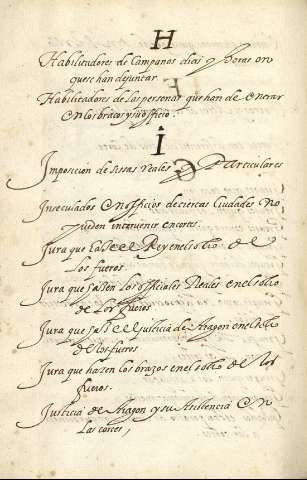 H
Habilitadores de Campanas dias y horas en
que se han de juntar
Habilitadores de las personas que han de entrar
en los braços y su officio
I
Imposicion de sissas Reales y Particulares
Inseculados en officios de ciertas Ciudades no
pueden intervenir en cortes
Jura que haze el Rey en el solio de
los fueros
Jura que hazen los officiales Reales en el solio
de los fueros
Jura que haze el justicia de Aragon en el solio
de los fueros
Jura que hazen los brazos en el solio de los
fueros
Justicia de Aragon y su Assistencia en
las cortes